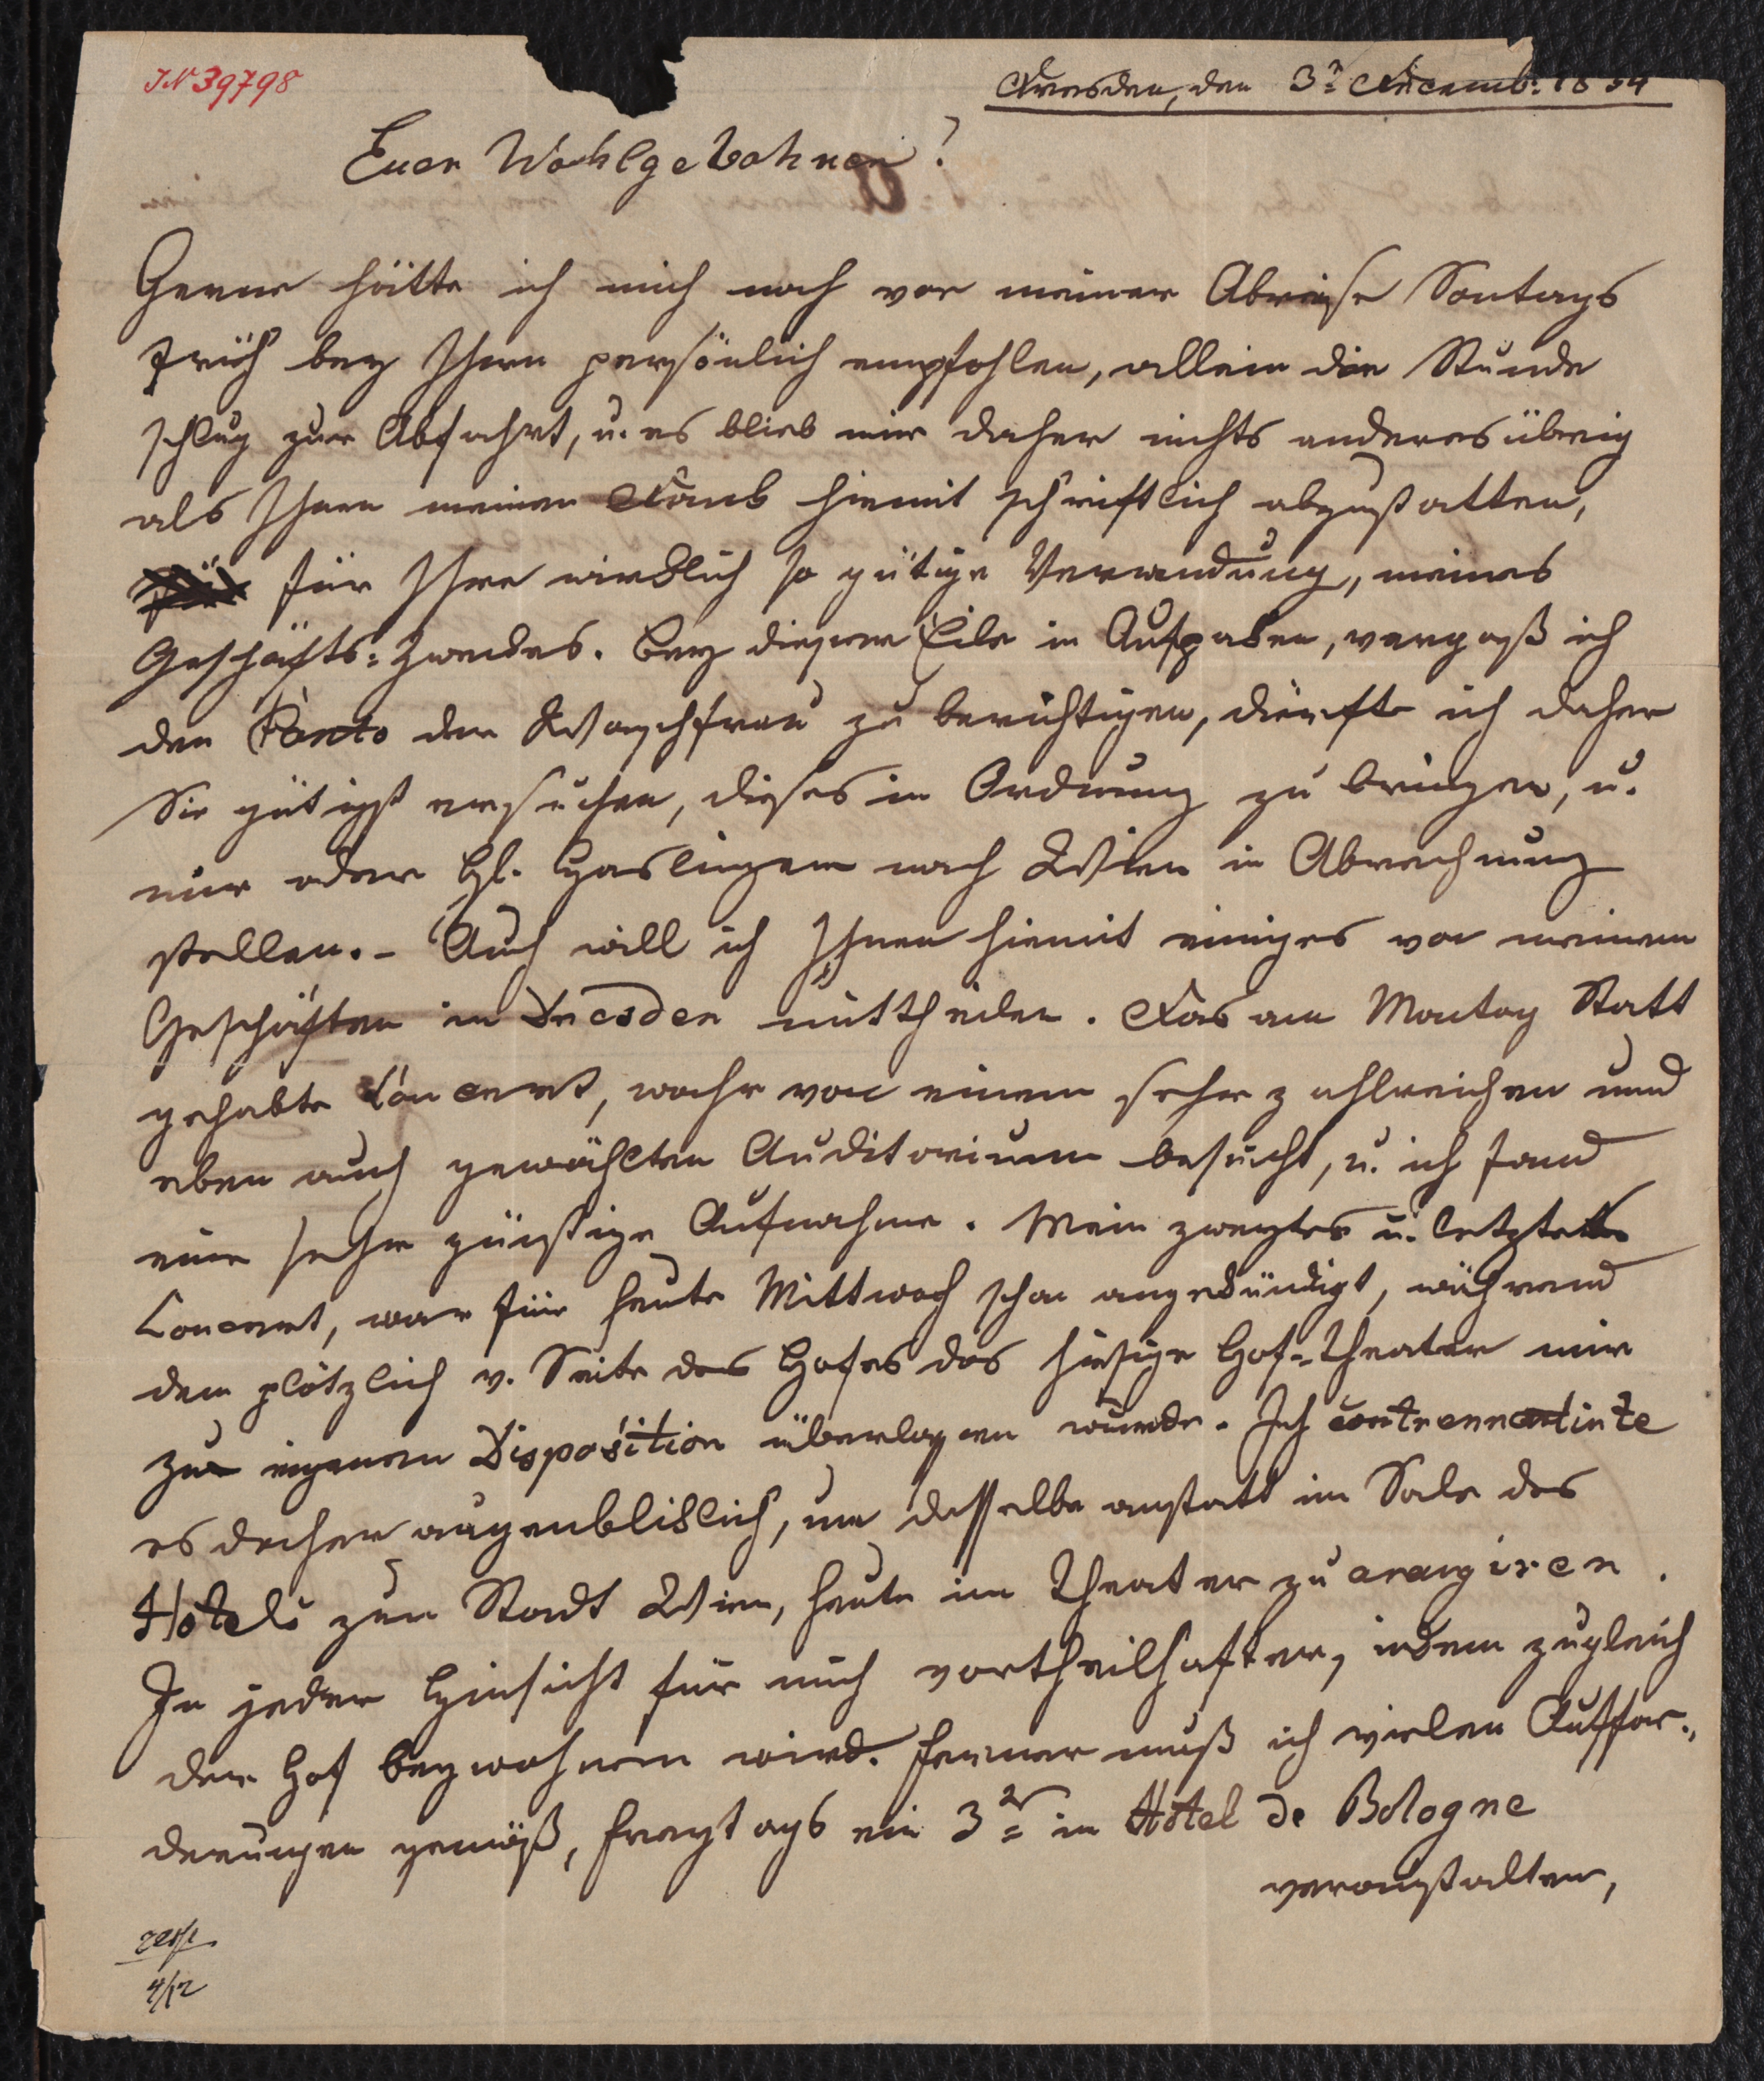 IN 39798
Dresden, den 3n Decemb: 1834
Euer Wohlgebohren!
Gerne hätte ich mich noch vor meiner Abreise Sontags
früh bey Ihnen persönlich empfohlen, allein die Stunde
schlug zur Abfahrt, u. es blieb mir daher nichts anderes übrig
als Ihnen meinen Dank hiemit schriftlich abzustatten,
für Ihre wirklich so gütige Verwendung, meines
Geschäfts=Zweckes. Bey dieser Eile in Ausgaben, vergaß ich
den Conto der Waschfrau zu berichtigen, dürfte ich daher
Sie gütigst ersuchen, dieses in Ordnung zu bringen, u.
mir oder H. Haslinger nach Wien in Abrechnung
stellen. – Auch will ich Ihnen hiemit einiges von meinen
Geschäften in Dresden mittheilen. Das am Montag Statt
gehabte Concert, wahr von einem sehr zahlreichen und
eben auch gewählten Auditorium besucht, u. ich fand
eine sehr günstige Aufnahme. Mein zweytes u. letztes
Concert, war für heute Mittwoch schon angekündigt, während
dem plötzlich v. Seite des Hofes das hiesige Hof=Theater mir
zur eigenen Disposition überlassen wurde. Ich
es daher augenbliklich, um dasselbe anstatt im Sale des
Hotels zur Stadt Wien, heute im Theater zu arangiren.
In jeder Hinsicht für mich vortheilhafter, indem zugleich
der Hof beywohnen wird. Ferner muß ich vielen Auffor=
derungen gemäß, Freytags ein 3tes im Hôtel de Bologne
veranstalten,
4/12